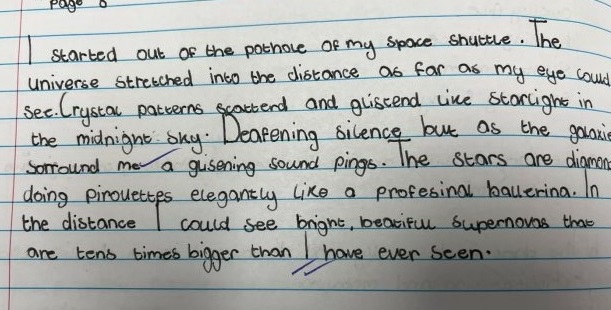 Page 8
I started out of the pothole of my space shuttle. The
universe stretched into the distance as far as my eye could
see. Crystal patterns scatterd and gliscend like starlight in
the midnight sky. Deafening silence but as the galaxie
sorround me a glisening sound pings. The stars are diamon
doing pirouettes elegantly like a profesinal ballerina. In
the distance I could see bright, beatiful supernovas that
are tens times bigger than I have ever seen.